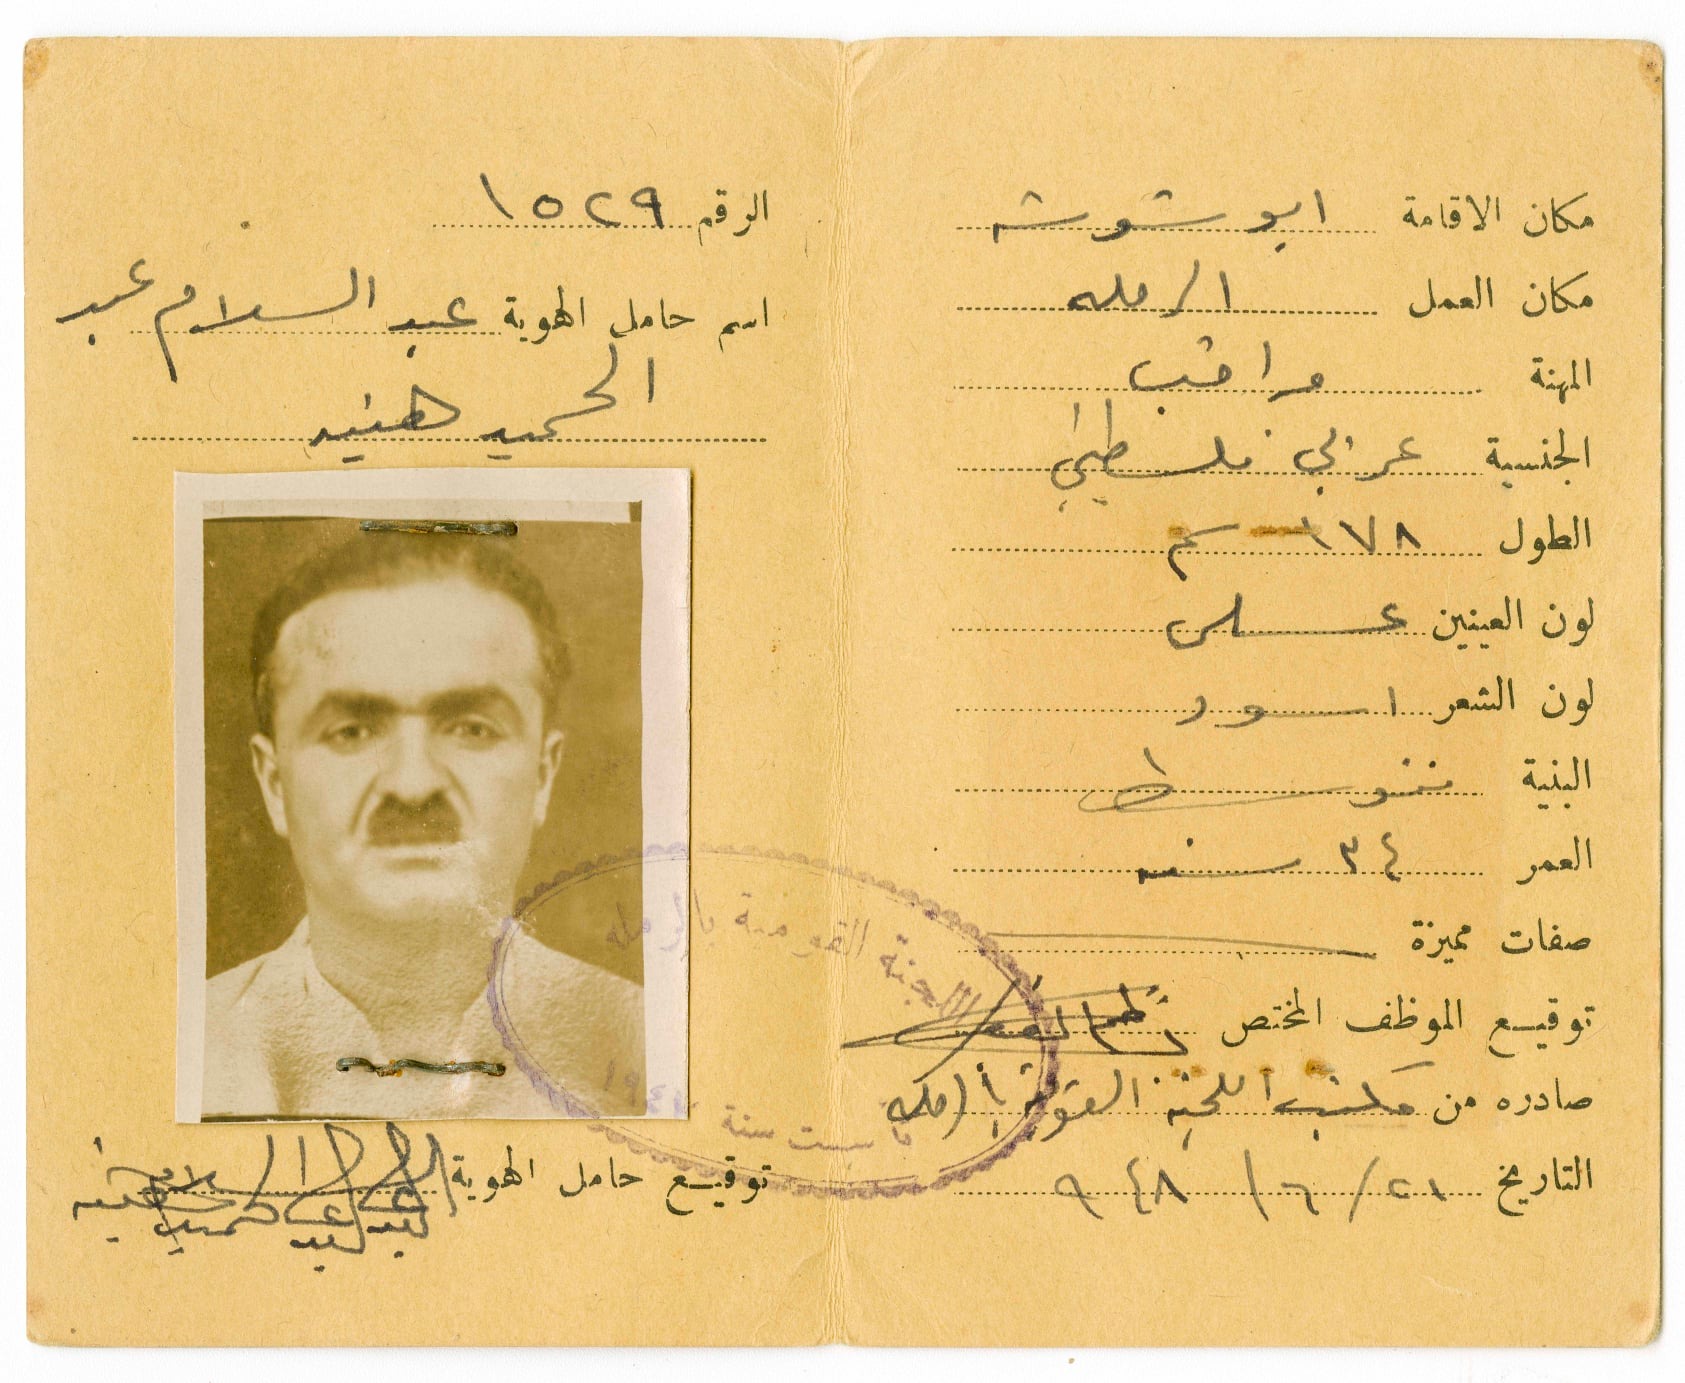 مكان الاقامة ابو شوشه
مكان العمل الرمله
المهنة مراقب
الجنسية عربي فلسطيني
الطول ١٧٨ سم
لون العينين عسلي
لون الشعر اسود
البنية متوسط
العمر ٣٤ سنه
صفات مميزة
توقيع الموظف المختص
صادره من مكتب اللجنة القومية بالرمله
التاريخ ٢١/٦/٩٤٨
الرقم ١٥٢٩
اسم حامل الهوية عبد السلام عبد
الحميد هنيه
اللجنة القومية بالرمله
تأسست سنة
توقيع حامل الهوية